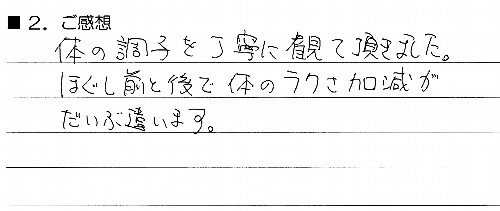 ■ 2. ご感想
体の調子を丁寧に観て頂きました。
ほぐし前と後で体のラクさ加減が
だいぶ違います。